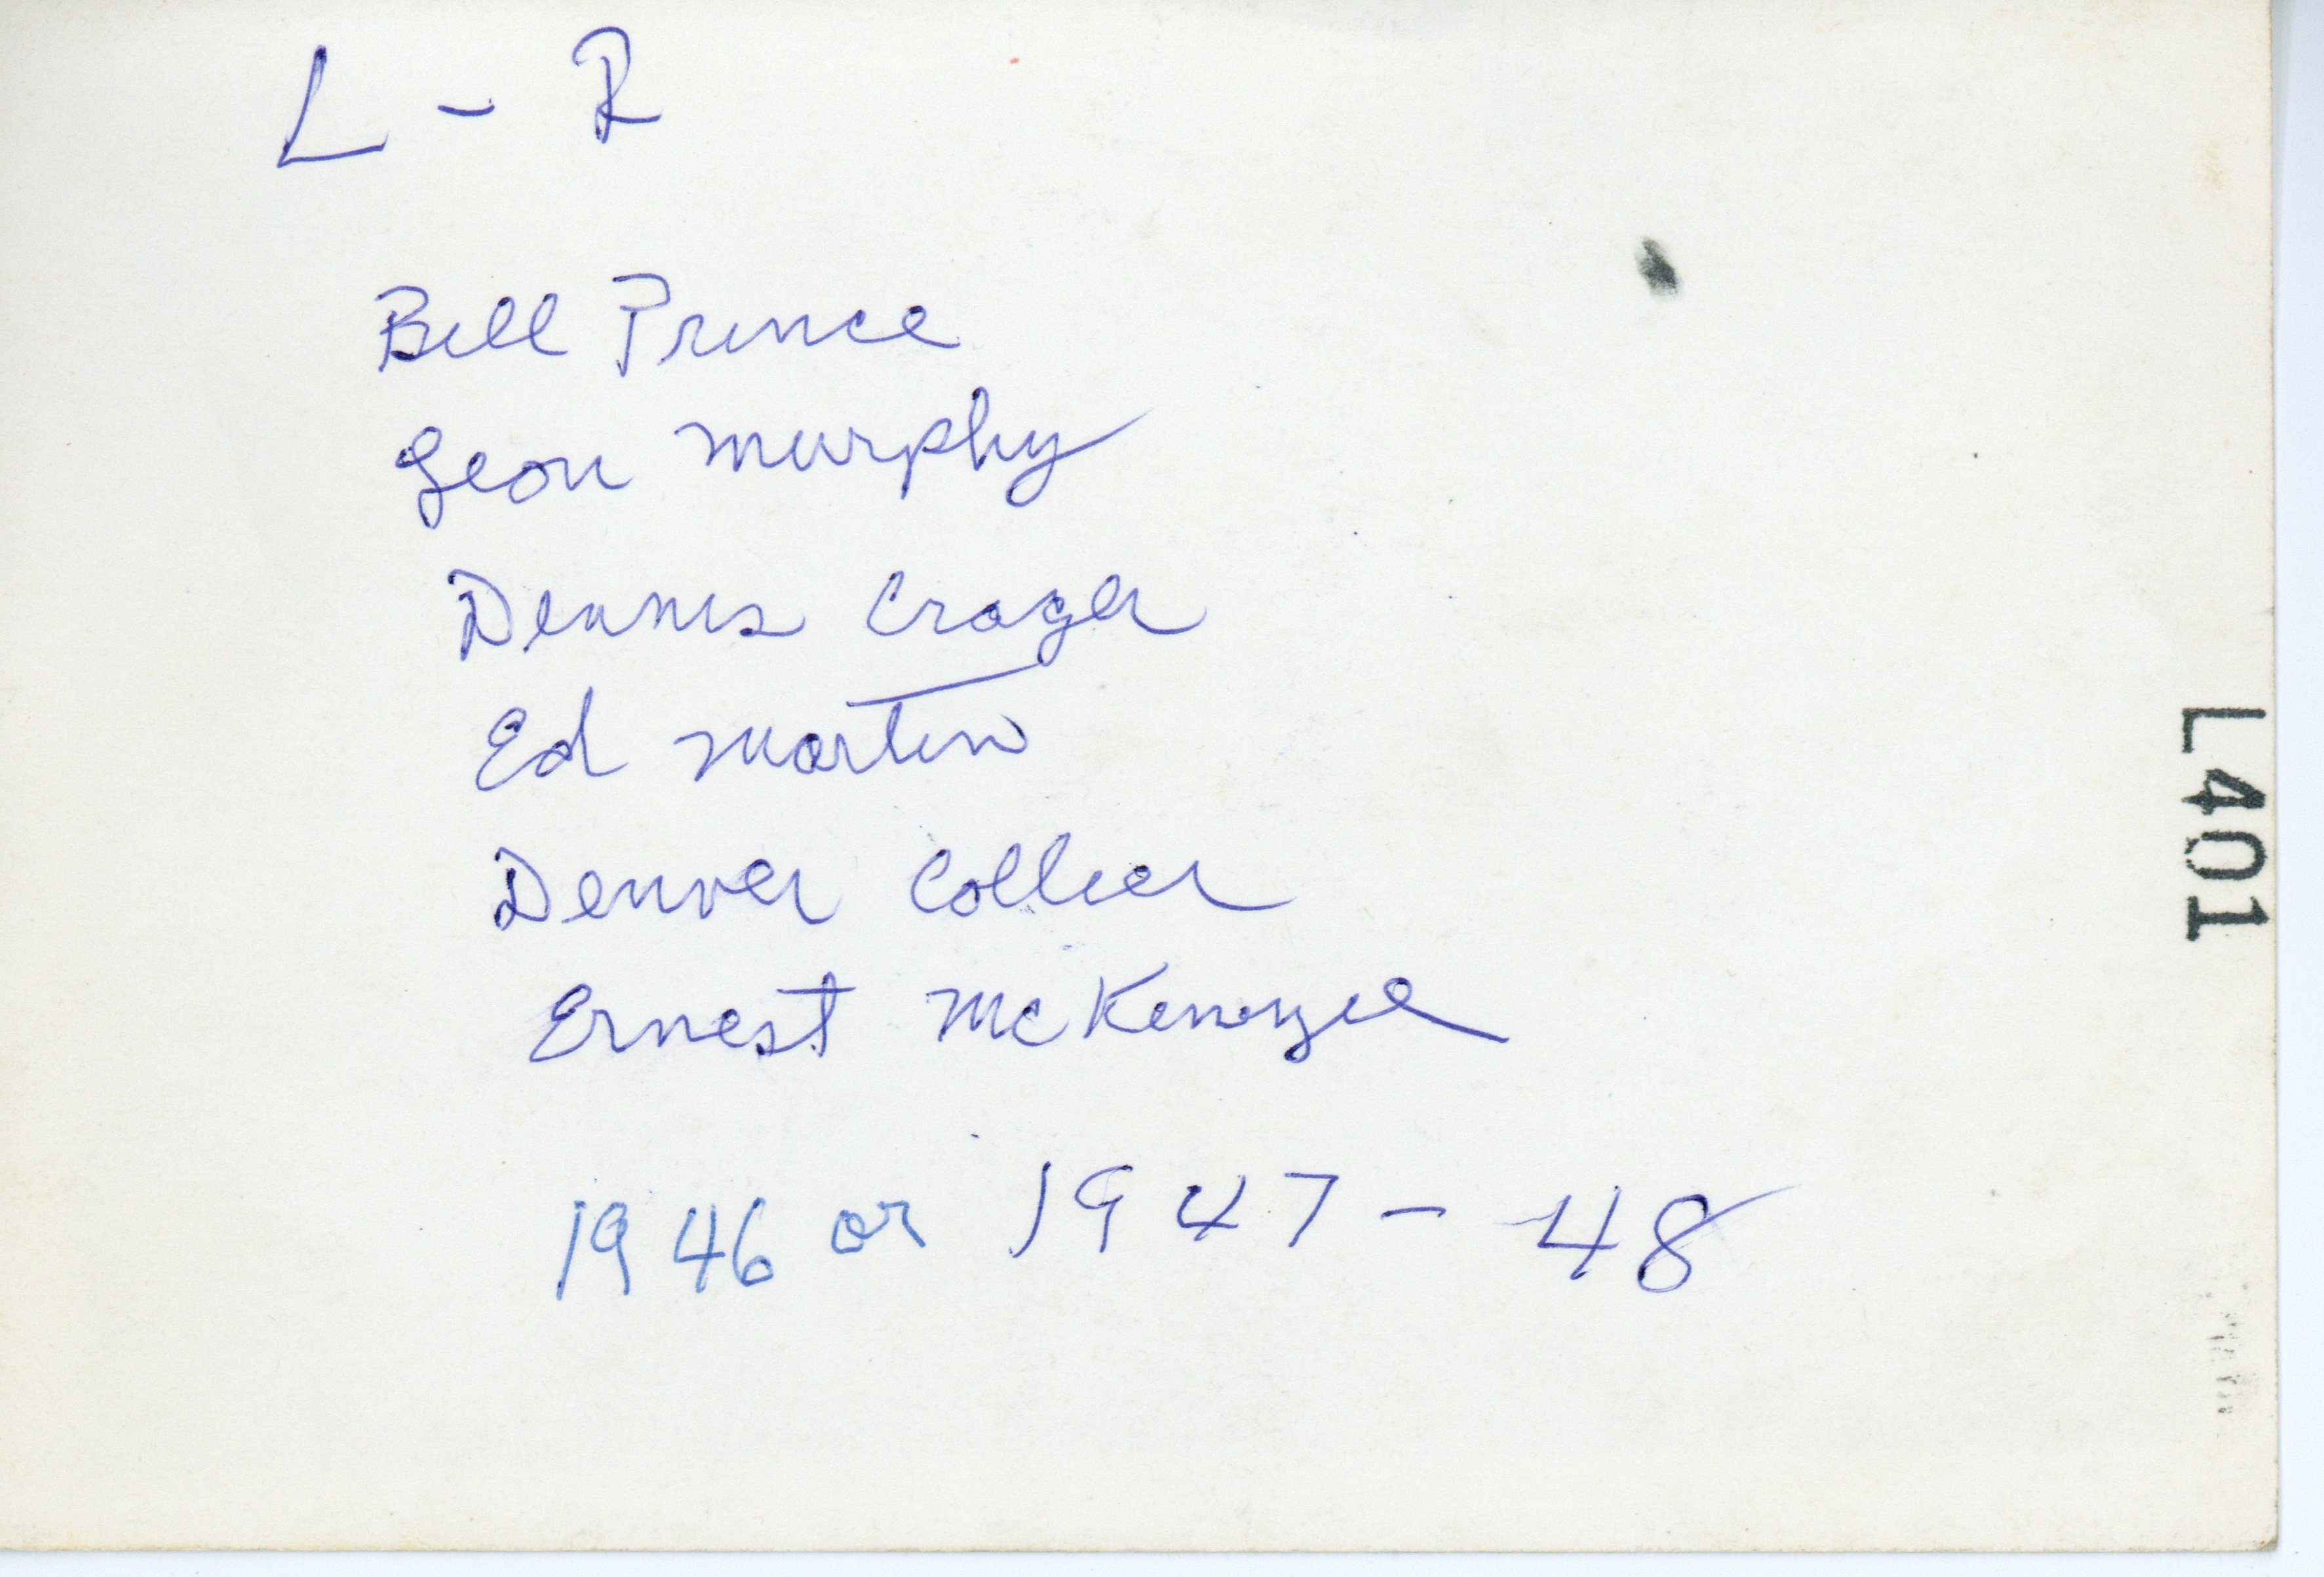 L - R
Bill Prince
Geon Murphy
Dennis Crager
Ed Martin
Denver Collier
Ernest McKenzie
1946 or 1947 - 48
L401